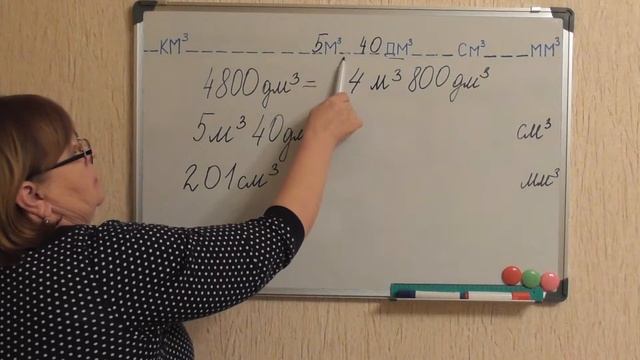 км³ 5м³ 40 дм³ см³ мм³
4800 дм³ = 4 м³ 800 дм³
5м³ 40 дм см³
201 см³ мм³